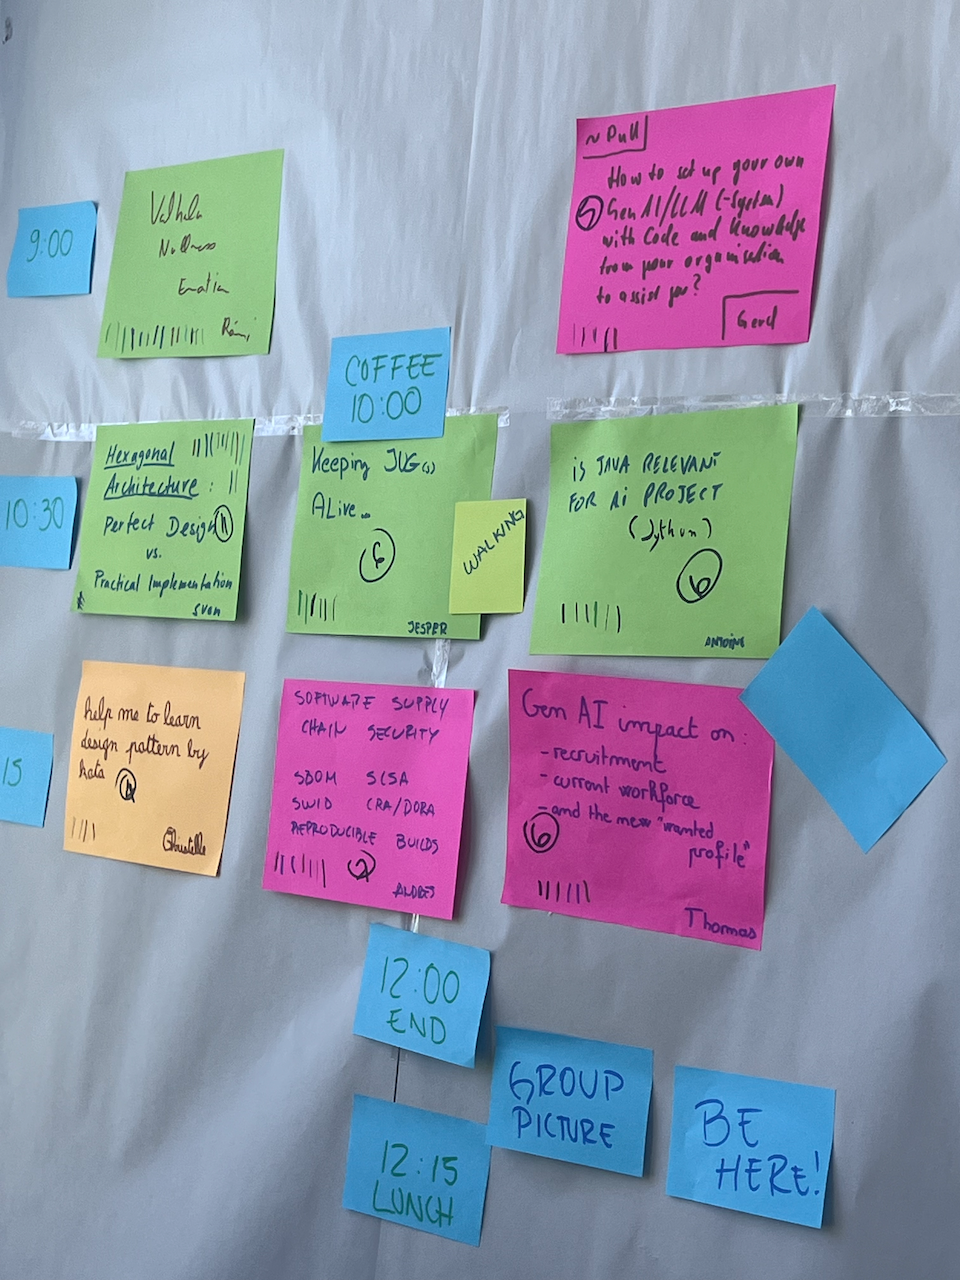 9:00
Valhala
Nullness
Emotion
Rémi
~ Pull
How to set up your own
Gen AI/LLM (-System)
with Code and Knowledge
from your organisation
to assist you?
5
Gerd
COFFEE
10:00
10:30
Hexagonal
Architecture:
Perfect Design
11
vs.
Practical Implementation
Sven
Keeping JUG(s)
ALive...
6
JESPER
WALKING
iS JAVA RELEVANT
FOR Ai PROJECT
(Jython)
6
ANTOINE
15
help me to learn
design pattern by
kata
4
Christelle
SOFTWARE SUPPLY
CHAIN SECURITY
SBOM SLSA
SWID CRA/DORA
REPRODUCIBLE BUILDS
7
ANDRES
Gen AI impact on:
- recruitment
- current workforce
- and the new "wanted
profile"
6
Thomas
12:00
END
GROUP
PICTURE
BE
HERE!
12:15
LUNCH